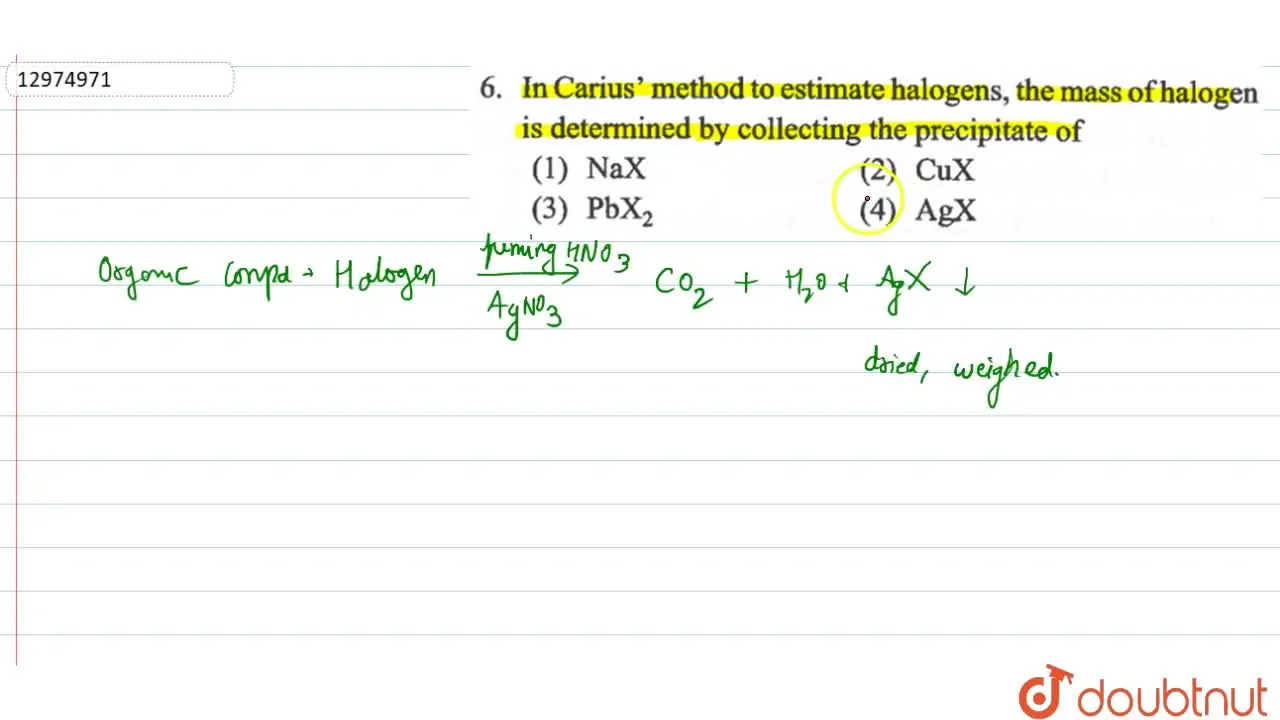 12974971
6. In Carius' method to estimate halogens, the mass of halogen
is determined by collecting the precipitate of
(1) NaX (2) CuX
(3) PbX₂ (4) AgX
Organic compd + Halogen fuming HNO₃ AgNO₃ → CO₂ + H₂O + AgX ↓
dried, weighed.
doubtnut